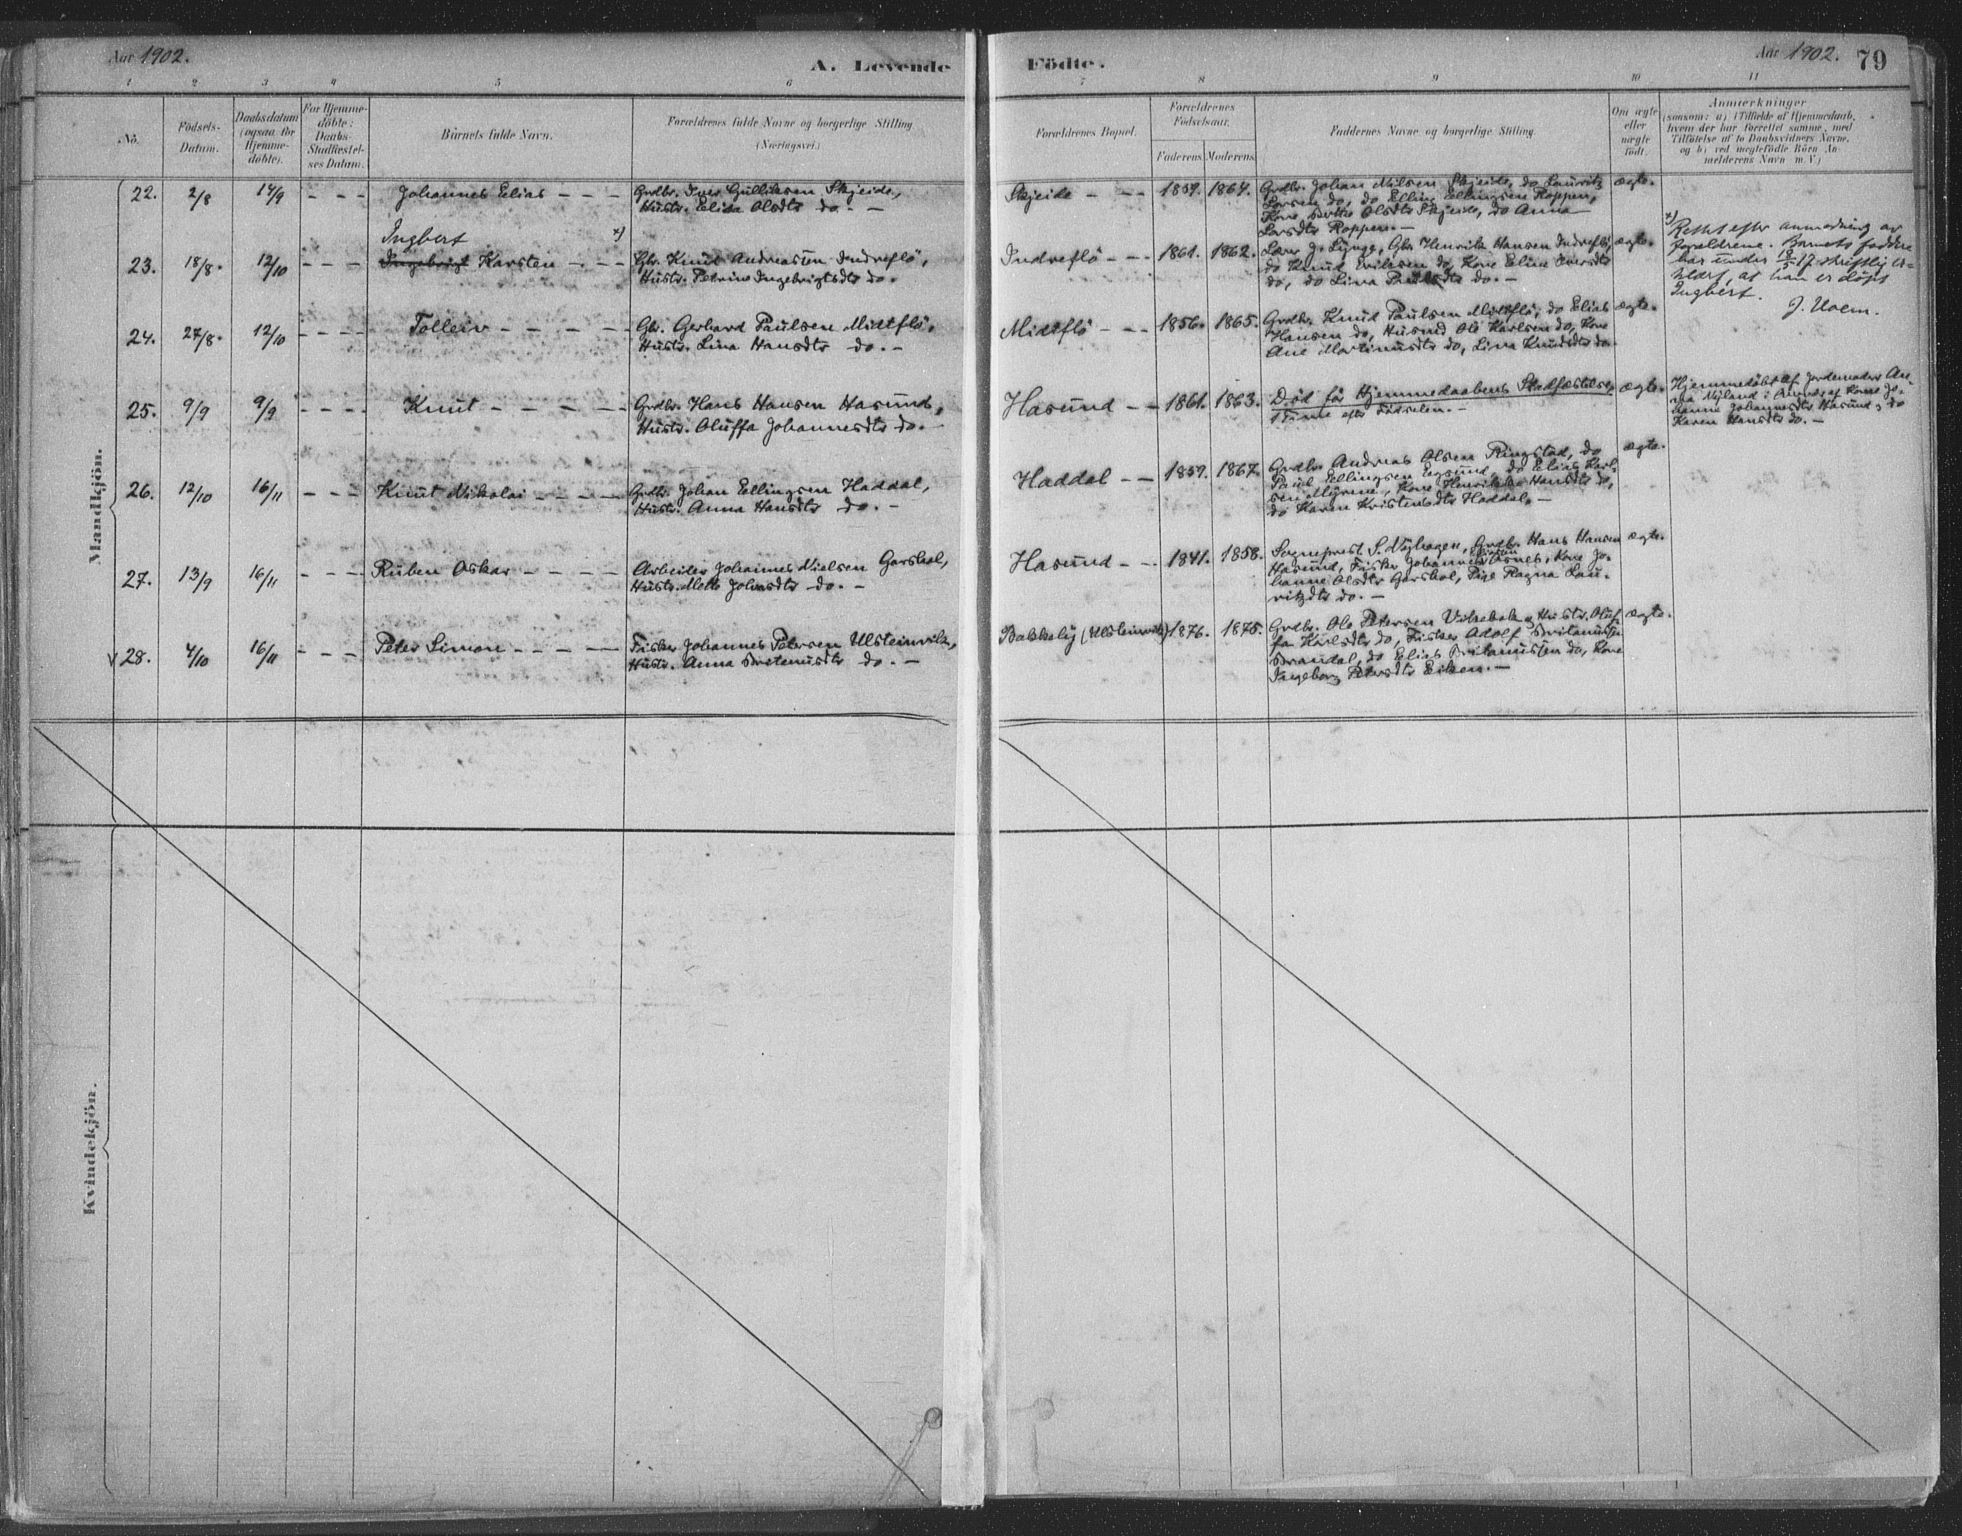 Aar 1902.
A. Levende
Födte.
Aar 1902. 79
1 2 3 4 5 6 7 8 9 10 11
No.
Födsels-
Datum.
Daabsdatum
(ogsaa for
Hjemme-
döbte).
For Hjemme-
döbte:
Daabs-
Stadfæstel-
ses Datum.
Barnets fulde Navn.
Forældrenes fulde Navne og borgerlige Stilling
(Næringsvei.)
Forældrenes Bopæl.
Forældrenes
Födselsaar.
Faderens. Moderens.
Faddernes Navne og borgerlige Stilling.
Om ægte
eller
uægte
födt.
Anmærkninger
(saasom: a) i Tilfælde af Hjemmedaab,
hvem der har forrettet samme, med
Tilföielse af to Daabsvidners Navne,
og b) ved uægtefödte Börn An-
melderens Navn m. V.)
Mandkjön.
22. 2/8 14/9 - - - Johannes Elias - - -
Grdbr. Iver Gulliksen Skjeide,
Hustr. Elisa Olsdtr do. -
Skjeide - - - 1859. 1864.
Grdbr. Johan Nilsen Skjeide, do Lauritz
Larsen do, do Elling Ellingsen Roppen,
Kone Berthe Olsdtr Skjeide, do Anna
Larsdtr Roppen. -
ægte.
Ingbert x)
23. 18/8. 12/10 - - - - Ingebrigt Karsten - - -
Gbr. Knut Andreassen Indreflö,
Hustr. Petrine Ingebrigtsdtr do.
Indreflö - - - 1861. 1862.
Lærer J. Lynge, Gbr. Henrik Hansen Indreflö,
do Knud Eriksen do, Kone Elina Iversdtr
do, do Lina Paulsdtr do. -
ægte.
x)
Rettet efter anmodning av
forældrene. Barnets faddere
har under 18/5 17 skriftlig er-
klært, at han er døpt
Ingbert.
J. Uoem.
24. 27/8. 12/10 - - - - Tolleiv - - - -
Gbr. Gerhard Paulsen Midtflö,
Hustr. Lina Hansdtr do. -
Midtflö - - - 1856. 1865.
Grdbr. Knud Paulsen Midtflö, do Elias
Hansen do, Husmd Ole Karlsen do, Kone
Ane Martinusdtr do, Lina Knudsdtr do.
ægte.
25. 9/9 9/9 - - - - Knut - - - -
Grdbr. Hans Hansen Hasund,
Hustr. Oluffa Johannesdtr do. -
Hasund - - 1861. 1863.
Död för Hjemmedaabens Stadfæstelse,
1 Time efter Födselen. -
ægte.
Hjemmedöbt af Jordemoder An-
na Nyland i Overvær af Kone Jo-
hanne Johannesdtr Hasund og do
Karen Hansdtr do. -
26. 12/10 16/11 - - - Knut Nikolai - - - -
Grdb. Johan Ellingsen Haddal,
Hustr. Anna Hansdtr do. -
Haddal - - 1859. 1867.
Grdbr. Andreas Olsen Ringstad, do
Paul Ellingsen Eegsund, do Elias Karl-
sen Myrene, Kone Henrikke Hansdtr do,
do Karen Kristensdtr Haddal. -
ægte.
27. 13/9 16/11 - - - Ruben Oskar - - - -
Arbeider Johannes Nielsen Garshol,
Hustr. Mette Johansdtr do. -
Hasund - - 1841. 1858.
Sogneprest S. Nyhagen, Grdbr. Hans Hansen
Hasund, Fisker Johannes Asnes, Kone Jo-
hanne Olsdtr Garshol, Pige Ragna Lau-
ritzdtr do. -
ægte.
v 28. 4/10 16/11 - - - - Peter Simon - - - -
Fisker Johannes Petersen Ulsteinvik,
Hustr. Anna Bretenusdtr do. -
Bakkely (Ulsteinvik) 1876. 1875.
Grdbr. Ole Petersen Viksbakk og Hustr. Oluf-
fa Karlsdtr do, Fisker Adolf Britanussen
Brandal, do Elias Britanussen do, Kone
Ingeborg Petersdtr Eiken. -
ægte.
Kvindekjön.